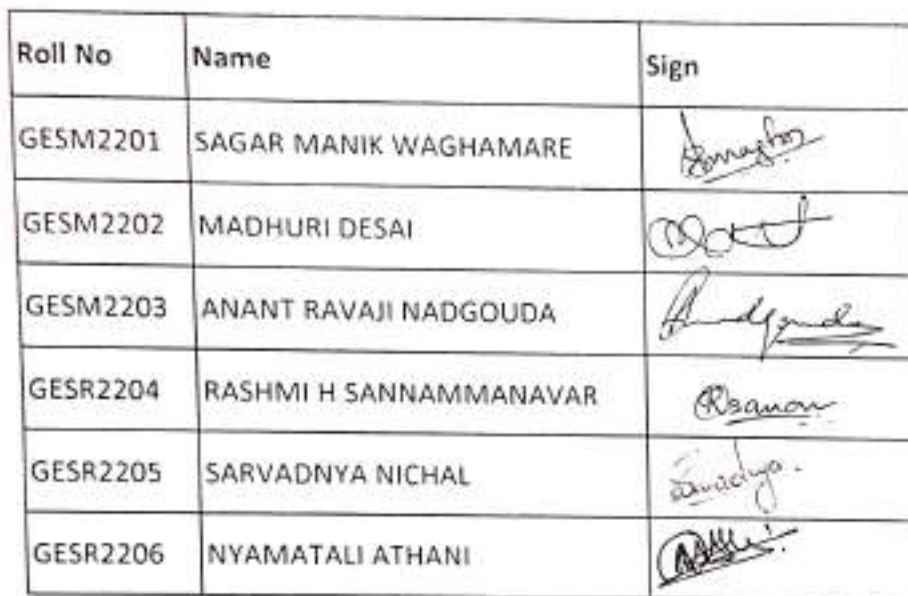 Roll No Name Sign
GESM2201 SAGAR MANIK WAGHAMARE
GESM2202 MADHURI DESAI
GESM2203 ANANT RAVAJI NADGOUDA
GESR2204 RASHMI H SANNAMMANAVAR
GESR2205 SARVADNYA NICHAL
GESR2206 NYAMATALI ATHANI